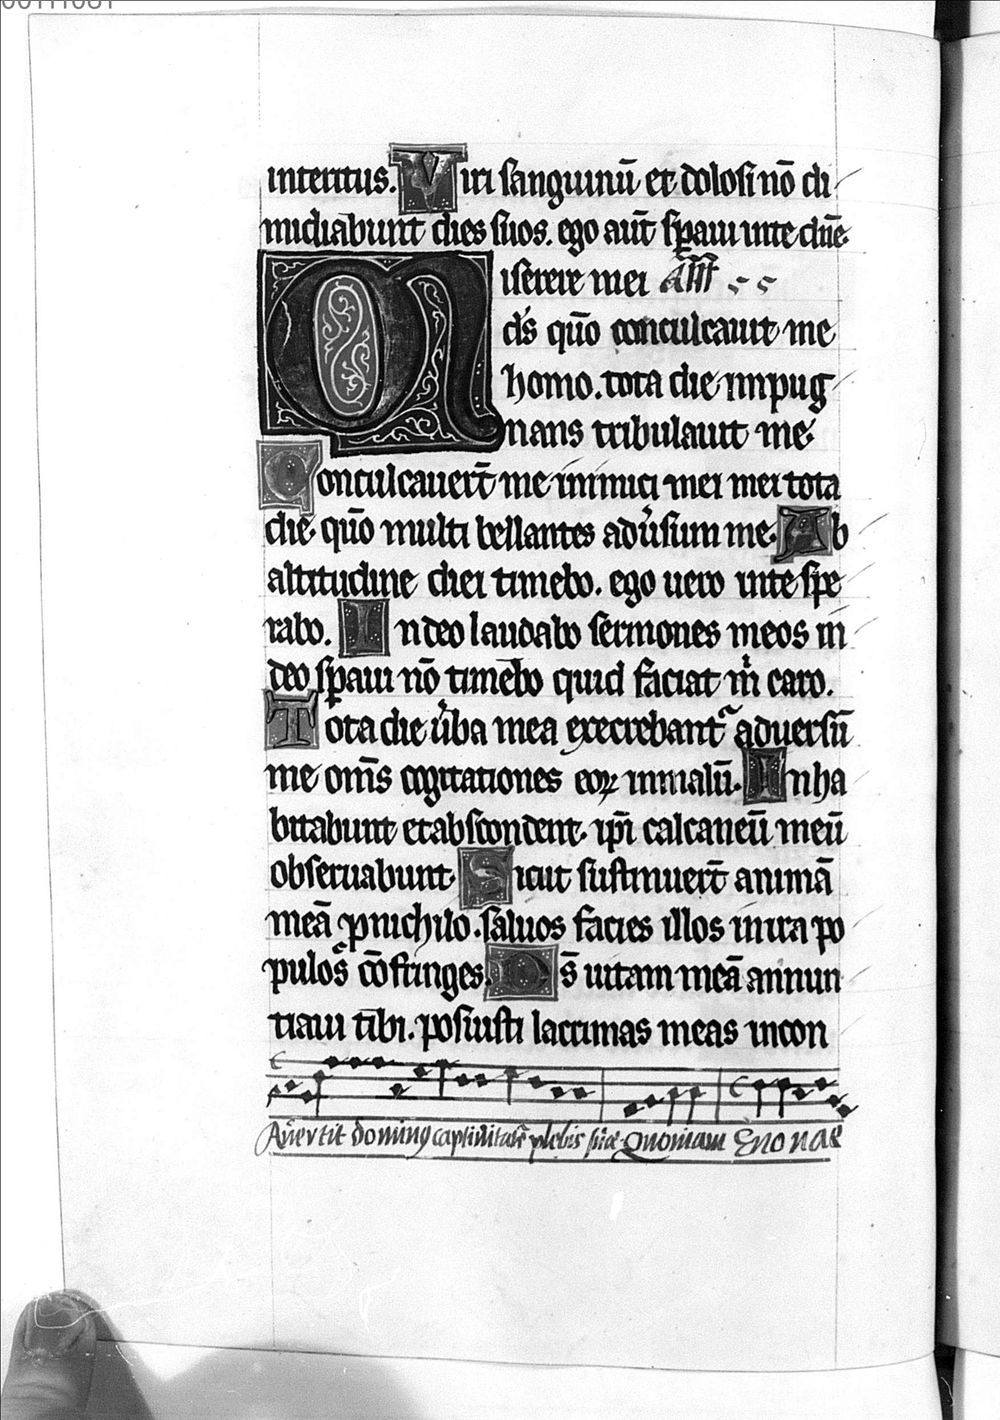 interitus. Viri sanguinū et dolosi nō di
midiabunt dies suos. ego aūt sp̱aui in te dn̄e.
Miserere mei
d̄s quō conculcauit me
homo. tota die impug
nans tribulauit me.
Conculcauer̄t me inimici mei mei tota
die. quō multi bellantes adu̓sum me. Ab
altitudine diei timebo. ego uero in te spe
rabo. In deo laudabo sermones meos in
deo sp̱aui nō timebo quid faciat m̓ caro.
Tota die u̓ba mea execrebant᷑ aduersū
me om̄s cogitationes eoꝝ in malū. Inha
bitabunt et abscondent. ip̄i calcaneū meū
obseruabunt. Sicut sustinuer̄t animā
meā ꝓ nichilo. saluos facies illos in ira po
pulos cōfringes. D̄s uitam meā annun
tiaui tibi. posuisti lacrimas meas in con
Au̓ertit dominꝰ captiuitatē plebis sue Quoniam Euouae